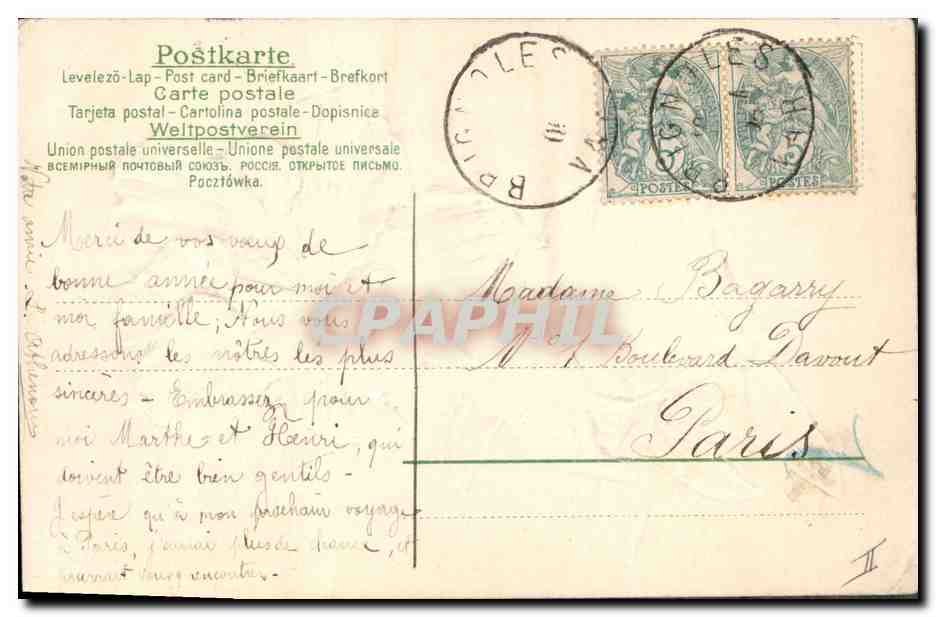 Postkarte
Levelező-Lap - Post card - Briefkaart - Brefkort
Carte postale
Tarjeta postal - Cartolina postale - Dopisnice
Weltpostverein
Union postale universelle - Unione postale universale
ВСЕМІРНЫЙ ПОЧТОВЫЙ СОЮЗЪ. РОССІЯ. ОТКРЫТОЕ ПИСЬМО.
Pocztówka.
BRIGNOLES
VAR
BRIGNOLES
VAR
POSTES
POSTES
Merci de vos vœux de
bonne année pour moi et
ma famille; Nous vous
adressons les nôtres les plus
sincères - Embrassez pour
moi Marthe et Henri, qui
doivent être bien gentils -
J'espère qu'à mon prochain voyage
à Paris, j'aurai plus de chance, et
pourrai vous rencontrer -
Votre amie
Madame Bagarry
Boulevard Davout
Paris
CPAPHIL
II